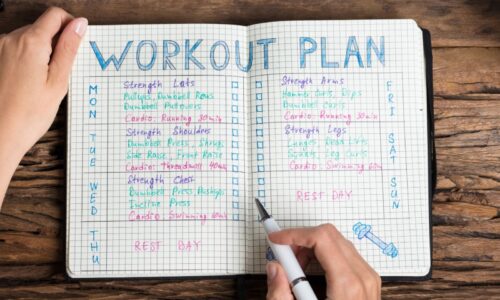 WORKOUT PLAN
MON
Strength Lats
Pullups, Dumbbell Rows
Dumbbell Pullovers
Cardio: Running 30min
TUE
Strength Shoulders
Dumbbell Press, Shrugs
Side Raise, Front Raise
Cardio: Threadmill 40min
WED
Strength Chest
Dumbbell Press Pushups
Incline Press
Cardio Swimming 60min
THU
REST DAY
FRI
Strength Arms
Hammer Curls, Dips
Dumbbell Curls
Cardio: Running 30min
SAT
Strength Legs
Lunges Dead Lifts
Squats, Leg Curls
Cardio: Swimming 60m
SUN
REST DAY